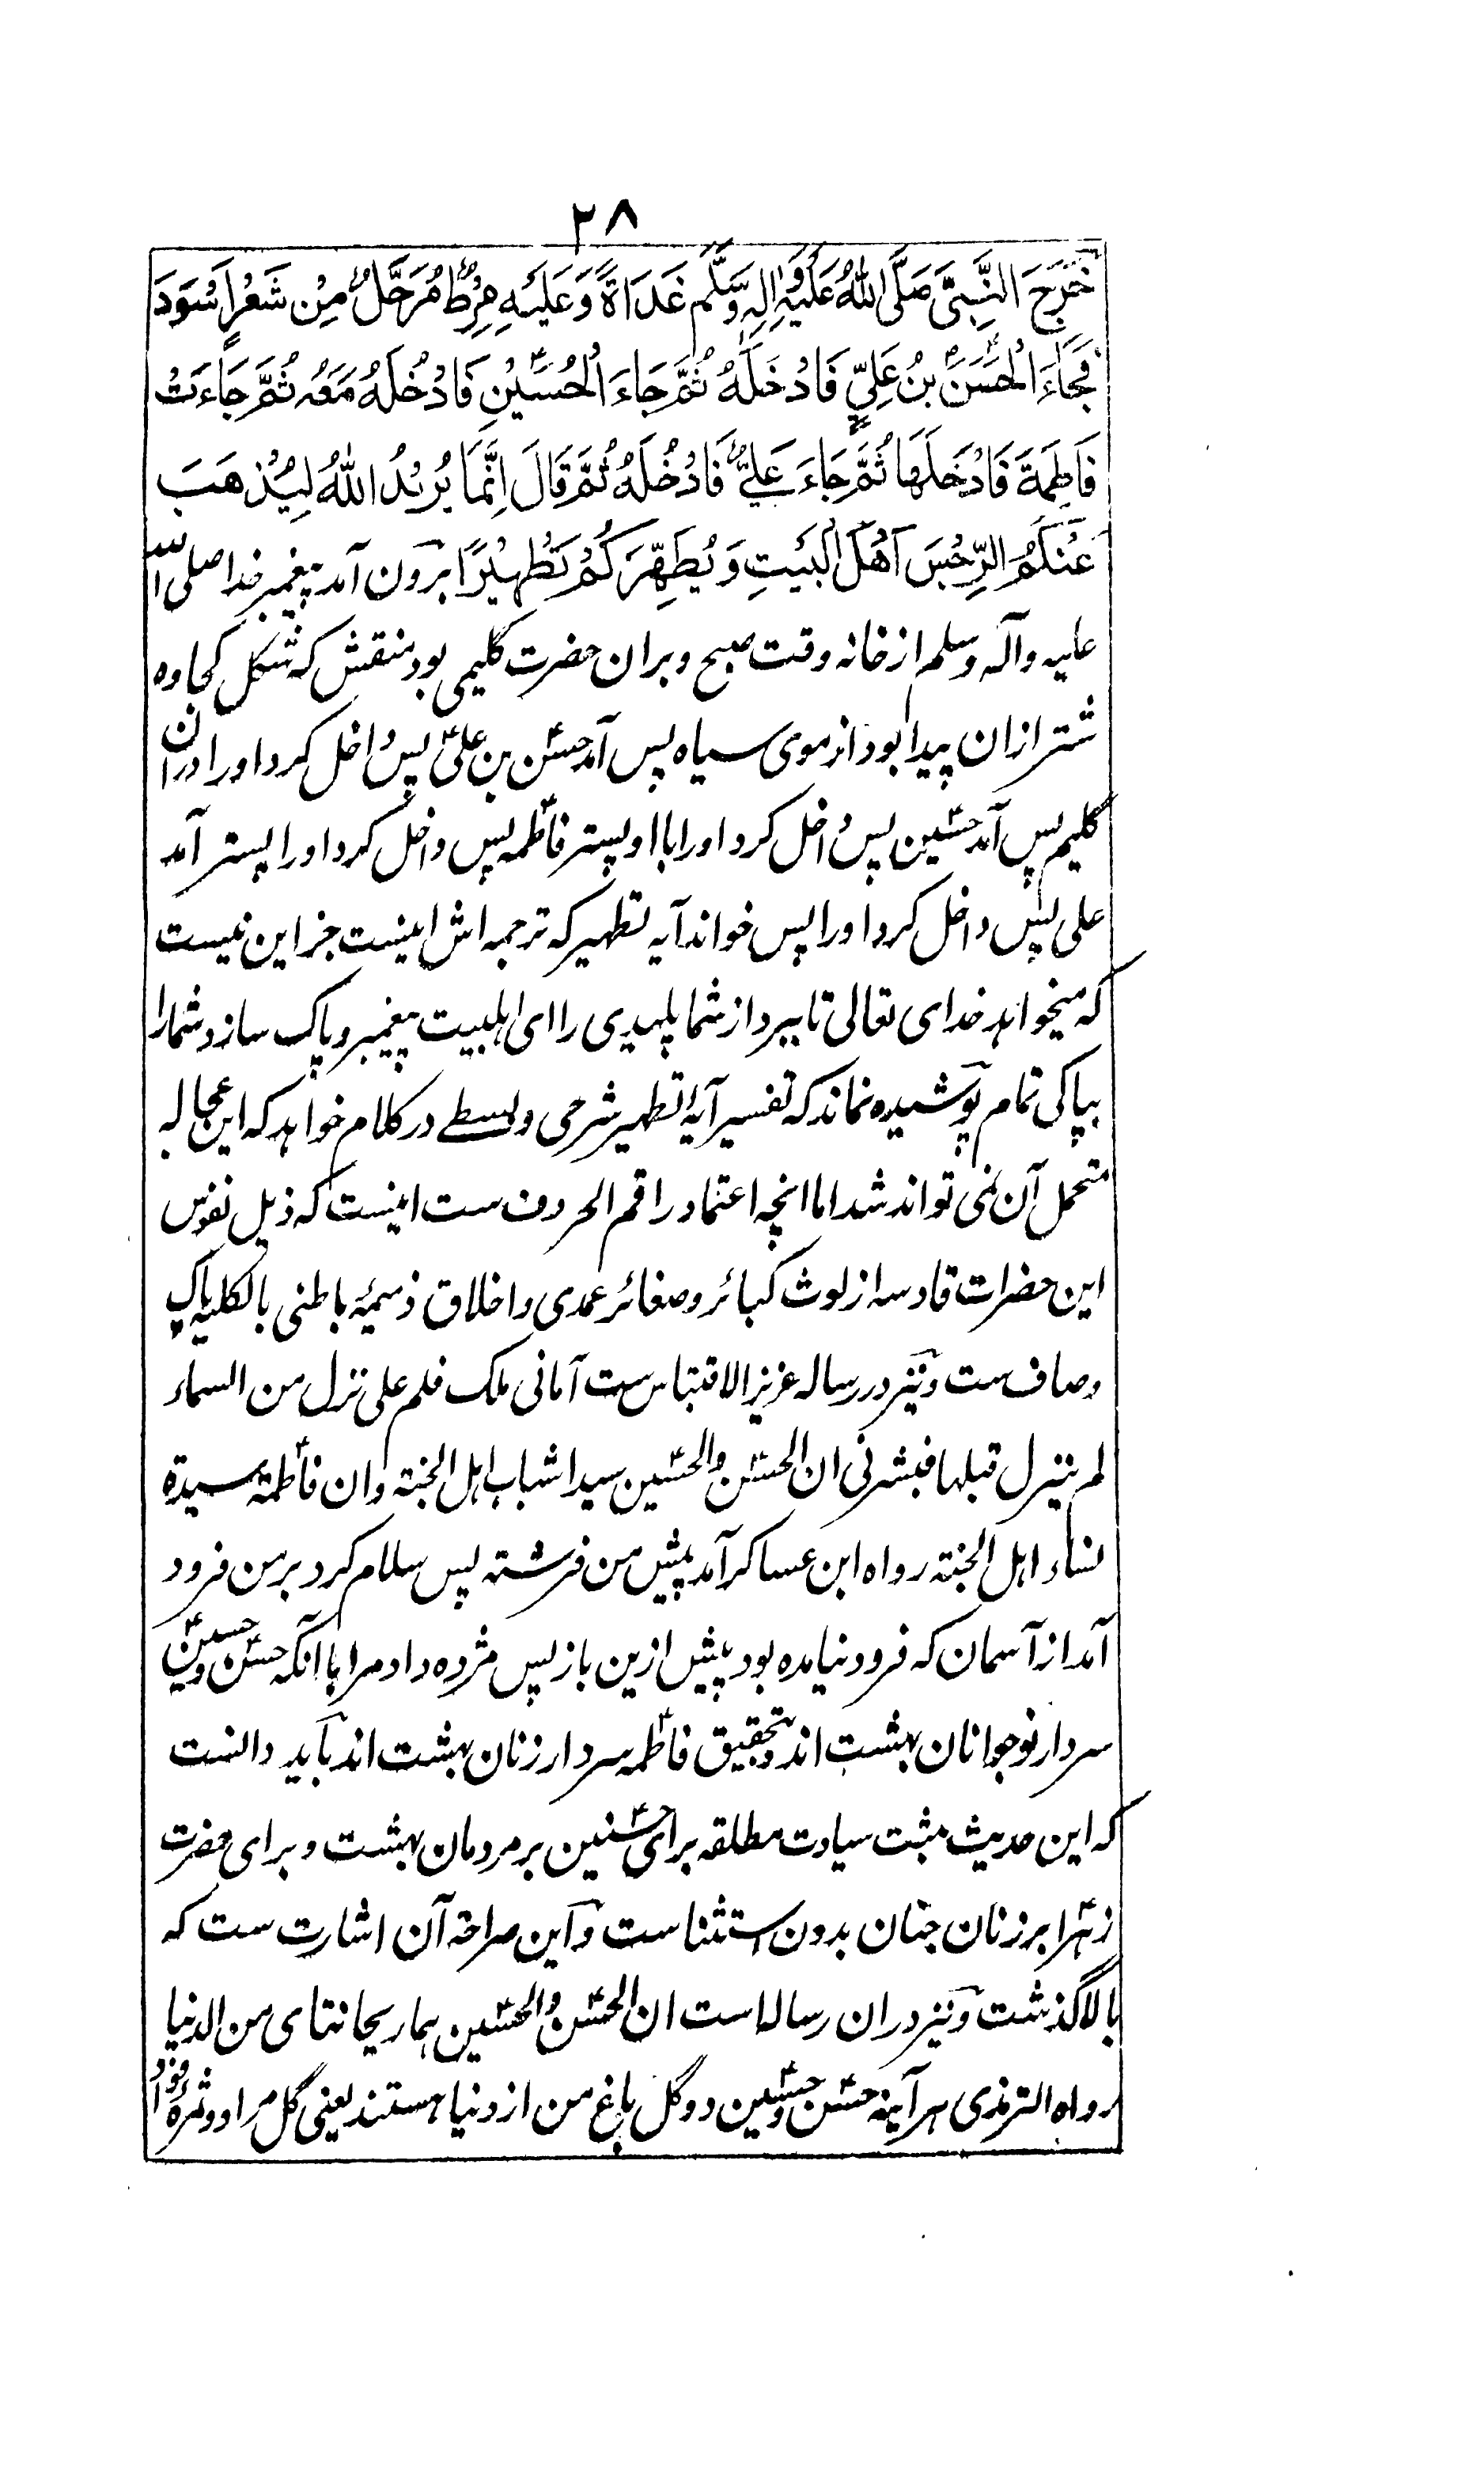 ۲۸
خَرَجَ النَّبِيُّ صَلَّى اللهُ عَلَيْهِ وَاٰلِهٖ وَسَلَّمَ غَدَاةً وَعَلَيْهِ مِرْطٌ مُرَحَّلٌ مِنْ شَعْرٍ اَسْوَدَ
فَجَاءَ الْحَسَنُ بْنُ عَلِيٍّ فَاَدْخَلَهُ ثُمَّ جَاءَ الْحُسَيْنِ فَادْخُلَهُ مَعَهُ ثُمَّ جَاءَتْ
فَاطِمَةَ فَادْخَلَهَا ثُمَّ جَاءَ عَلِيٌّ فَادْخُلَهُ ثُمَّ قَالَ اِنَّمَا يُرِيْدُ اللهُ لِيُذْهَبَ
عَنْكُمُ الرِّجْسَ اَهْلَ الْبَيْتِ وَيُطَهِّرَكُمْ تَطْهِيْرًا برون آمد پیغمبر خدا صلی اللہ
علیه وآله وسلم از خانه وقت صبح و بران حضرت گلیمی بود منقش که شکل کجاوه
شتر ازان پیدا بود از موی سیاه پس آمد حسن بن علی پس داخل کرد اورا دران
گلیم پس آمد حسین پس داخل کرد اورا با او پستر فاطمه پس داخل کرد اورا پستر آمد
علی پس داخل کرد اورا پس خواند آیه تطهیر که ترجمه اش اینست جز این نیست
که میخواهد خدای تعالی تا ببرد از شما پلیدی را ای اهلبیت پیغمبر و پاک سازد شمارا
بپاکی تمام پوشیده نماند که تفسیر آیهٔ تطهیر شرحی و بسطے در کلام خواهد که این عجاله
متحمل آن نمی تواند شد اما انچه اعتماد راقم الحروف ست اینست که ذیل نفوس
این حضرات قادسه از لوث کبائر و صغائر عمدی و اخلاق ذمیمهٔ باطنی بالکلیه پاک
و صاف ست و نیز در رساله عزیز الاقتباس ست آمانی ملک فلم علی نزل من السماء
لم ینزل قبلها فبشرنی ان الحسن والحسین سیدا شباب اهل الجنة وان فاطمة سیدة
نساء اهل الجنة رواه ابن عساکر آمد پیش من فرشته پس سلام کرد بر من فرود
آمد از آسمان که فرود نیامده بود پیش ازین باز پس مژده داد مرا با آنکه حسن و حسین
سردار نوجوانان بهشت اند و تحقیق فاطمه سردار زنان بهشت اند باید دانست
که این حدیث مثبت سیادت مطلقه برای حسنین بر مردمان بهشت و برای حضرت
زهرا بر زنان جنان بدون استثناست و این صراحة آن اشارت ست که
بالا گذشت و نیز دران رساله است ان الحسن والحسین هما ریحانتای من الدنیا
رواه الترمذی هر آینه حسن و حسین دو گل باغ من از دنیا هستند یعنی گل مراد و ثمرهٔ فواد